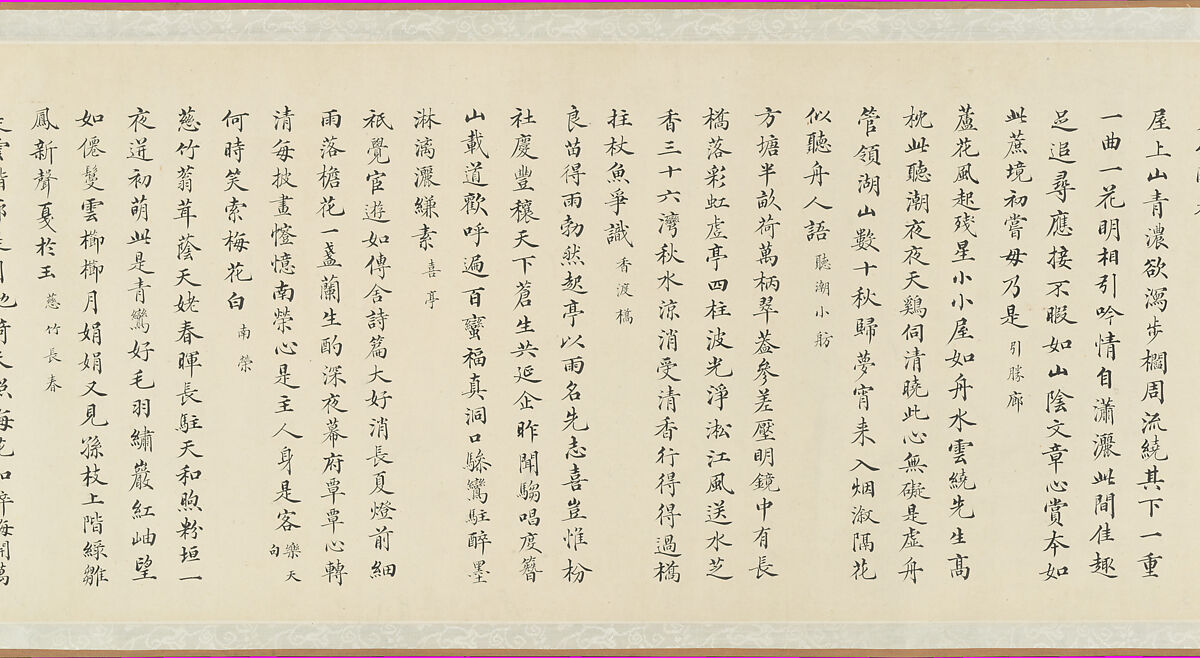 屋上山青濃欲瀉步欄周流繞其下一重
一曲一花明相引吟情自瀟灑此間佳趣
足追尋應接不暇如山陰文章心賞本如
此蔗境初嘗毋乃是 引勝廊
蘆花風起殘星小小屋如舟水雲繞先生高
枕此聽潮夜夜天鷄伺清曉此心無礙是虛舟
管領湖山數十秋歸夢宵来入烟溆隔花
似聽舟人語 聽潮小舫
方塘半畝荷萬柄翠葢參差壓明鏡中有長
橋落彩虹虛亭四柱波光淨淞江風送水芝
香三十六灣秋水涼消受清香行得得過橋
拄杖魚爭識 香渡橋
良苗得雨勃然起亭以雨名先志喜豈惟枌
社慶豐穰天下蒼生共延企昨聞騶唱度簪
山載道歡呼遍百蠻福真洞口驂鸞駐醉墨
淋漓灑縑素 喜亭
祇覺宦遊如傳舍詩篇大好消長夏燈前細
雨落檐花一盞蘭生酌深夜幕府覃覃心轉
清每披畫憶憶南榮心是主人身是客樂天句
何時笑索梅花白 南榮
慈竹蓊茸蔭天姥春暉長駐天和煦粉垣一
夜迸初萌此是青鸞好毛羽繡巖紅岫望
如僊鬘雲櫛櫛月娟娟又見孫枝上階綠雛
鳳新聲戛於玉 慈竹長春